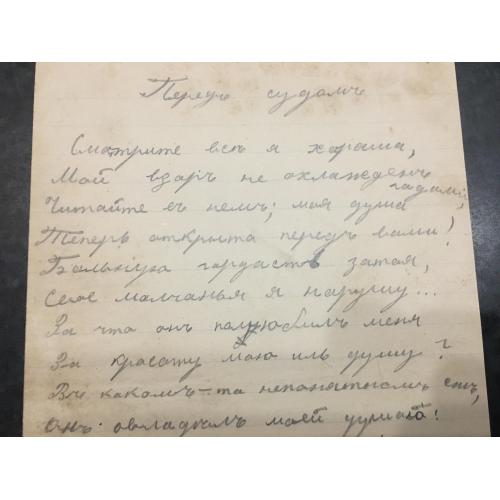 Передъ судомъ
Сматрите всѣ я хараша,
Мой взаръ не охлажденъ
гадами;
Читайте въ немъ; мая душа
Теперь открыта передъ вами!
Бальную гордасть затая,
Свае малчанья я нарушу...
За что онъ палюбилъ меня
За красату маю иль душу?
Въ какомъ-та непанятномъ снѣ,
Онъ авладѣлъ маей душаю!